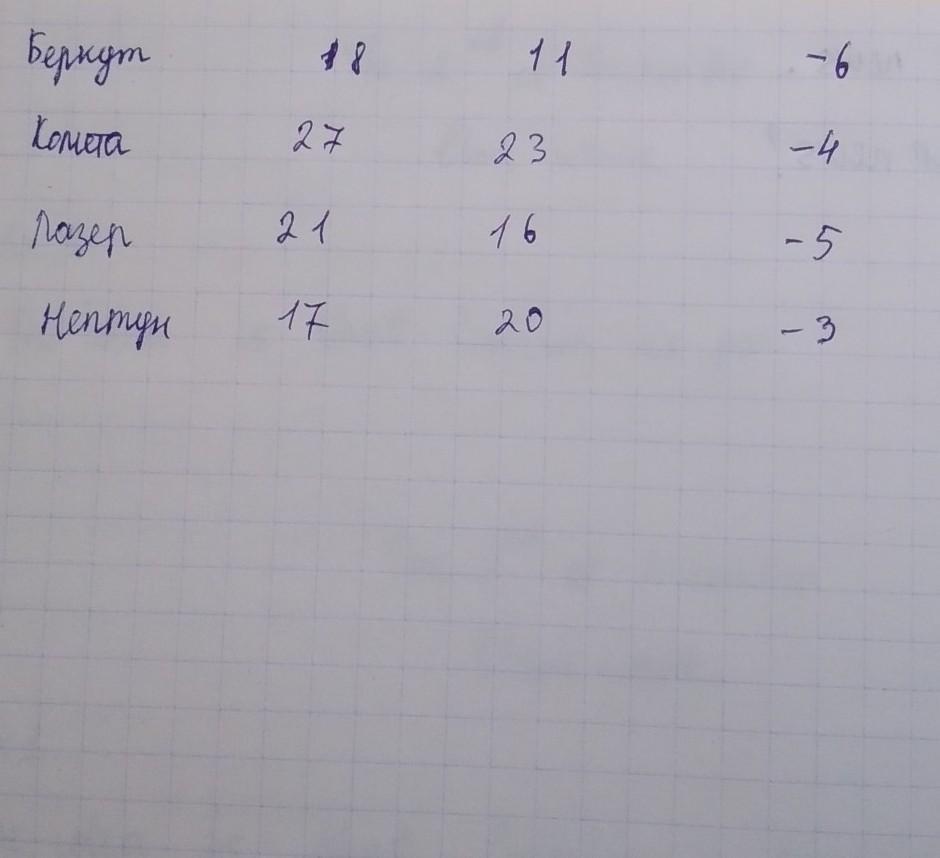 Беркут 18 11 -6
Комета 27 23 -4
Лазер 21 16 -5
Нептун 17 20 -3